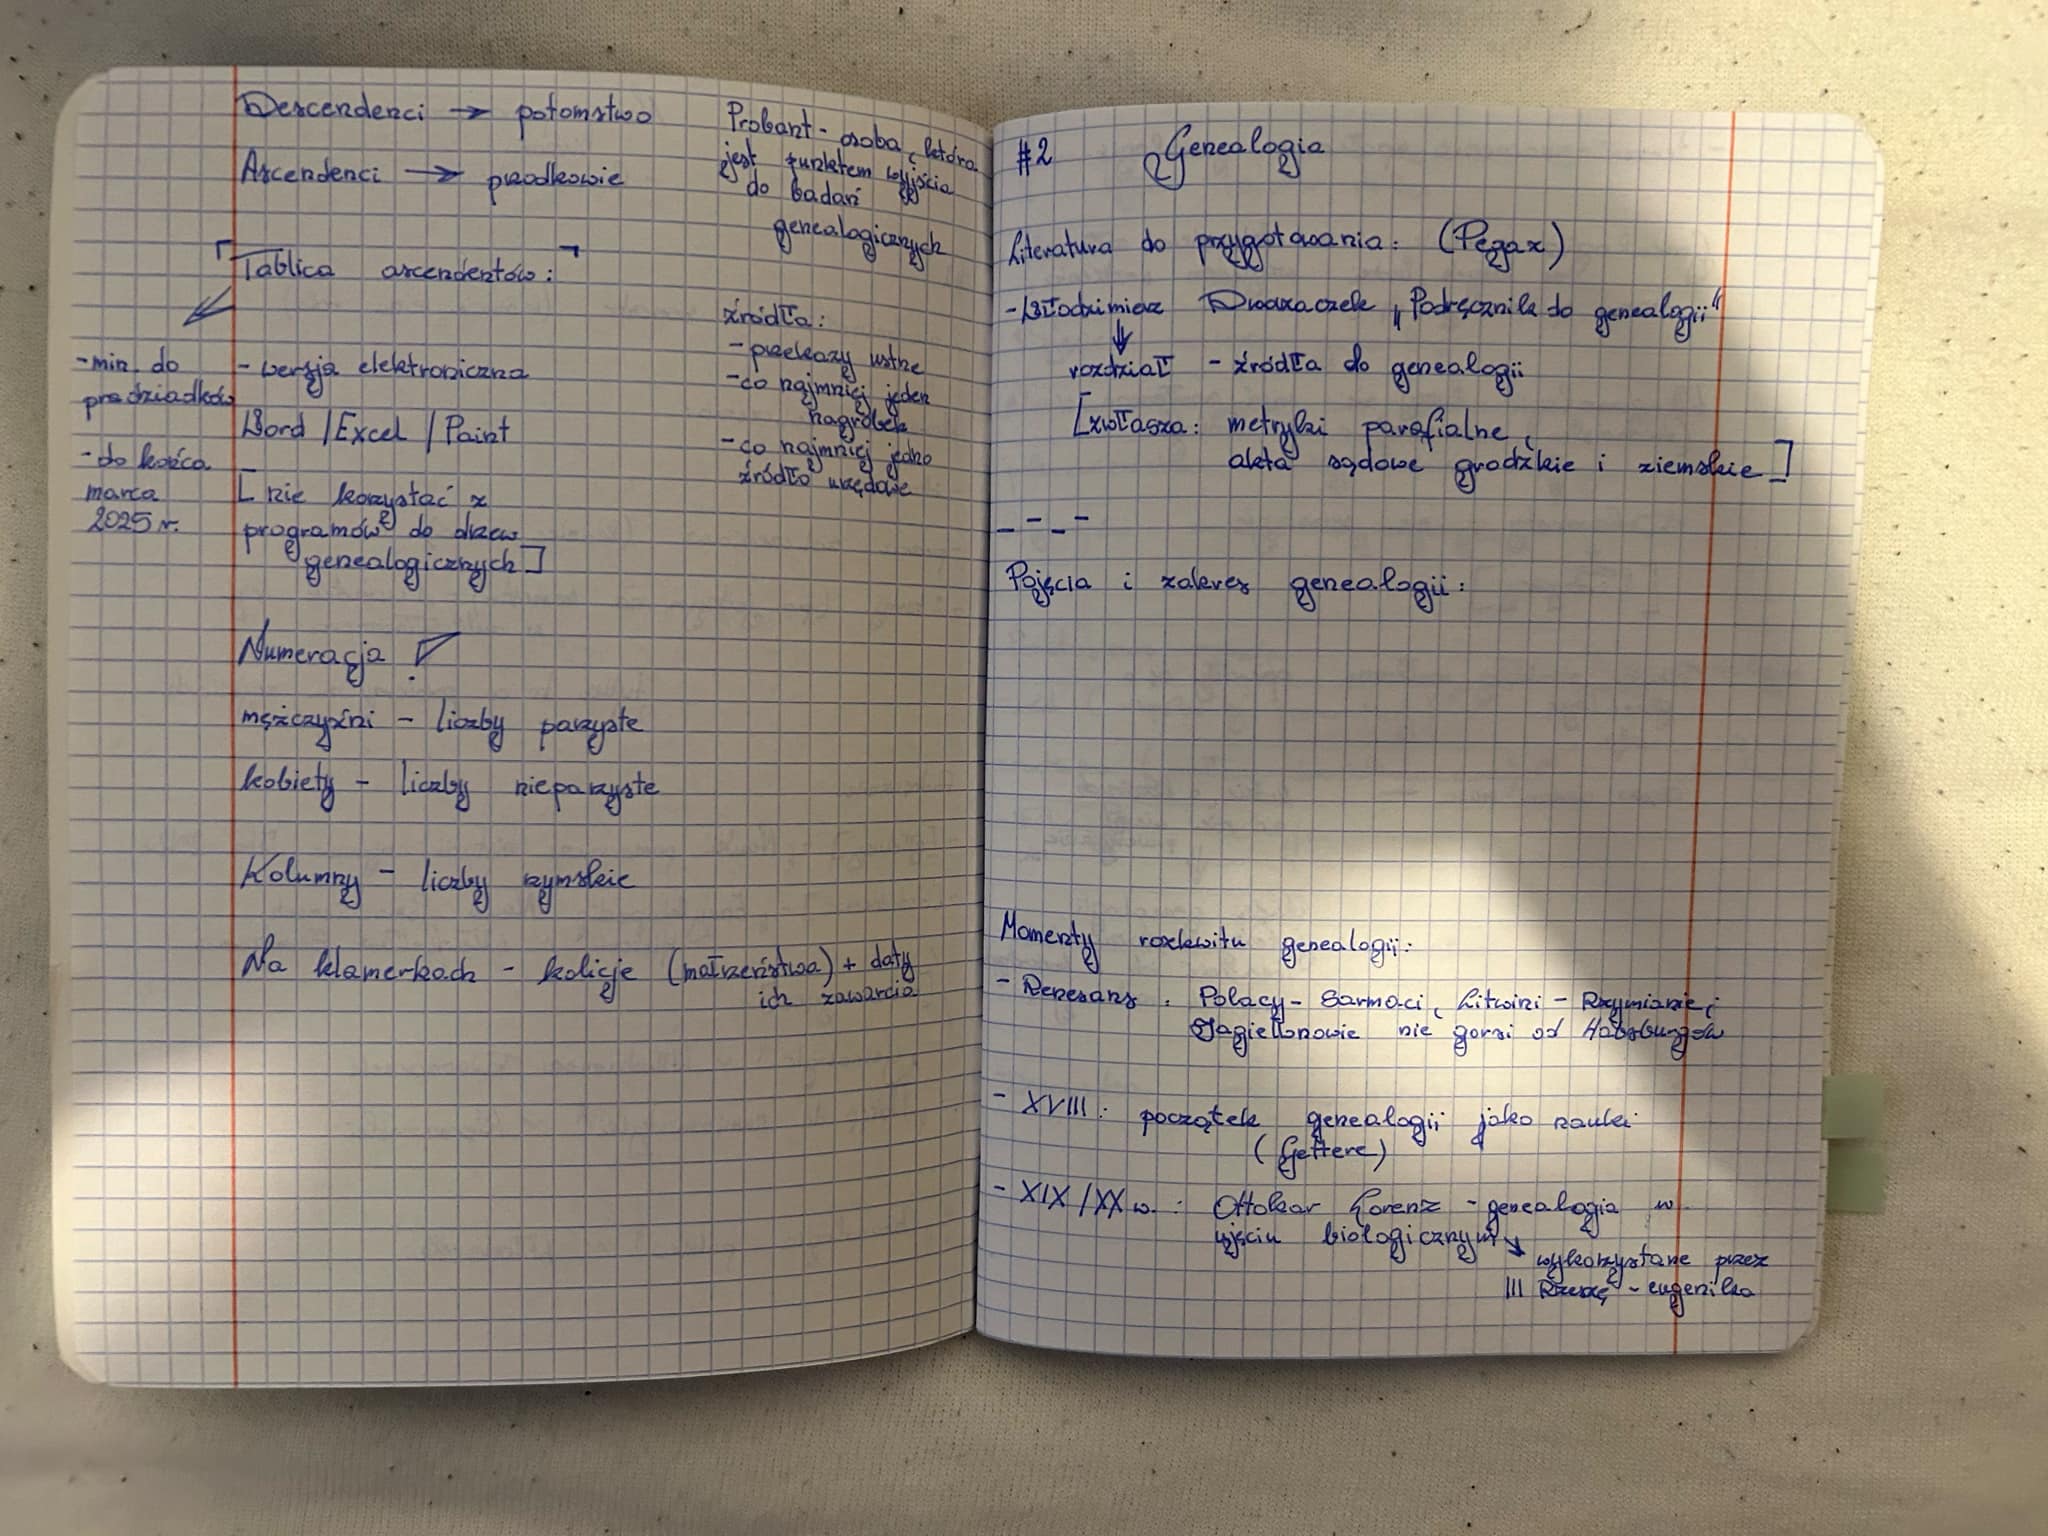 Descendenci → potomstwo
Ascendenci → przodkowie
Probant - osoba, która
jest punktem wyjścia
do badań
genealogicznych
Tablica ascendentów:
- min. do
pradziadków
- do końca
marca
2025 r.
- wersja elektroniczna
Word / Excel / Paint
[nie korzystać z
programów do drzew
genealogicznych]
źródła:
- przekazy ustne
- co najmniej jeden
nagrobek
- co najmniej jedno
źródło urzędowe
Numeracja !
mężczyźni - liczby parzyste
kobiety - liczby nieparzyste
Kolumny - liczby rzymskie
Na klamerkach - kolicje (małżeństwa) + daty
ich zawarcia
#2 Genealogia
Literatura do przygotowania: (Pegaz)
- Włodzimierz Dworzaczek „Podręcznik do genealogii“
rozdział - źródła do genealogii
[zwłaszcza: metryki parafialne,
akta sądowe grodzkie i ziemskie]
Pojęcia i zakres genealogii:
Momenty rozkwitu genealogii:
- Renesans: Polacy - Sarmaci, Litwini - Rzymianie;
Jagiellonowie nie gorsi od Habsburgów
- XVIII: początek genealogii jako nauki
(Gettere)
- XIX/XX w.: Ottokar Lorenz - genealogia w
ujęciu biologicznym
↘ wykorzystane przez
III Rzeszę - eugenika